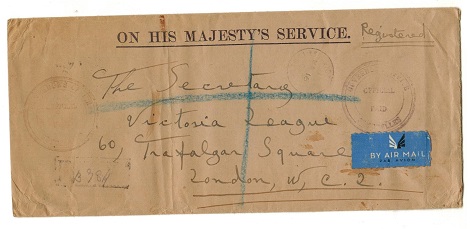 ON HIS MAJESTY'S SERVICE.
Registered
The Secretary
Victoria League
60, Trafalgar Square
London, W.C.2.
BY AIR MAIL
PAR AVION